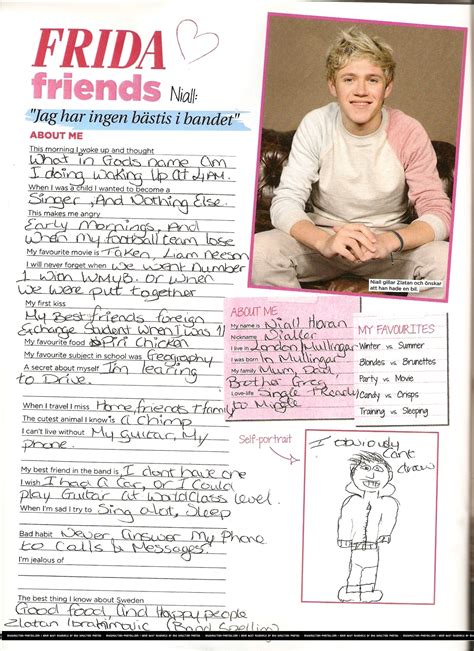 FRIDA
friends
Niall:
"Jag har ingen bästis i bandet"
ABOUT ME
This morning I woke up and thought
What in Gods name Am
I doing waking Up at 4AM.
When I was a child I wanted to become a
Singer, And Nothing Else.
This makes me angry
Early Mornings, And
When My football team lose
My favourite movie is Taken, Liam neeson
I will never forget when We went Number
1 With WMYB. or When
We were put together
My first kiss
My Best friends foreign
Exchange Student When I was 11
My favourite food is Piri Chicken
My favourite subject in school was Geography
A secret about myself I'm learing
to Drive.
When I travel I miss Home, friends + family
The cutest animal I know is A Chimp
I can't live without My Guitar, My
Phone.
My best friend in the band is I dont have one
I wish I had A Car, or I Could
play Guitar at World Class level.
When I'm sad I try to Sing alot, Sleep
Bad habit Never Answer My Phone
to Calls & Messages.
I'm jealous of
The best thing I know about Sweden
Good food, and Happy people
Zlatan Ibrahimavic (Bad Spelling)
Niall gillar Zlatan och önskar
att han hade en bil.
ABOUT ME
My name is Niall Horan
Nickname Nialler
I live in London/Mullingar
I was born in Mullingar
My family Mum, Dad,
Brother Greg
Love-life Single + Ready
to Mingle
MY FAVOURITES
Winter vs. Summer
Blondes vs. Brunettes
Party vs. Movie
Candy vs. Crisps
Training vs. Sleeping
Self-portrait
I obviously
cant
draw